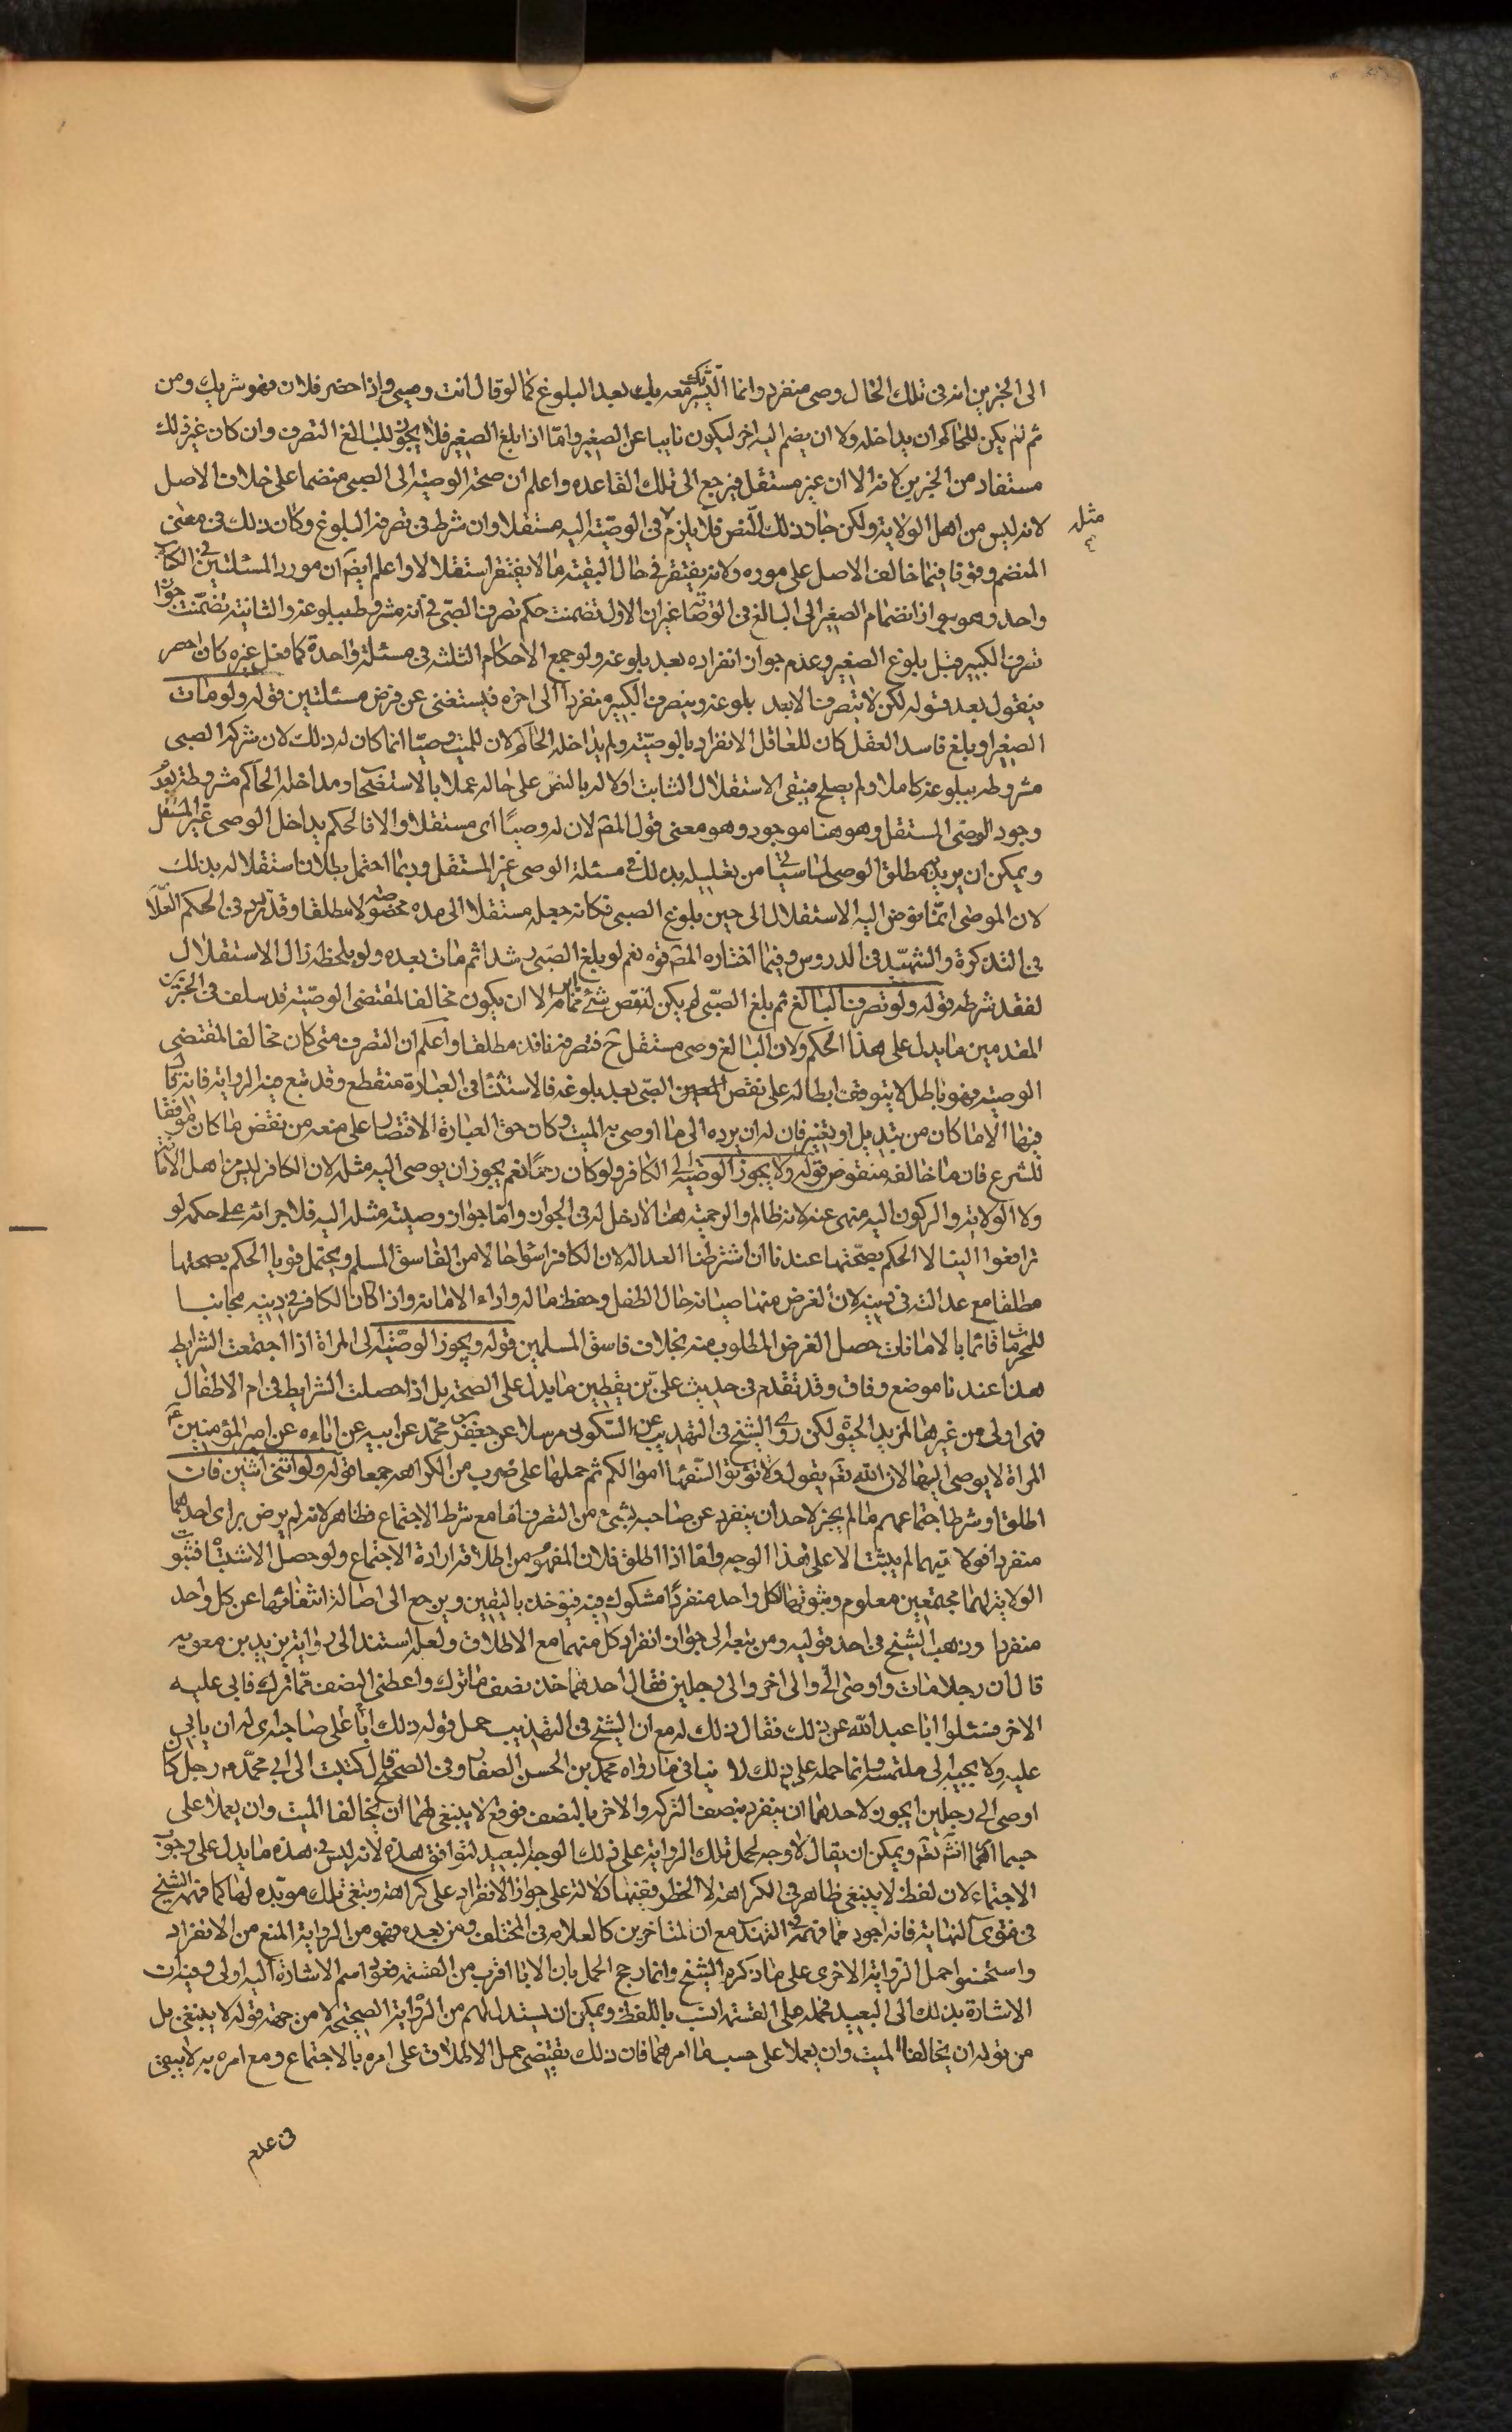 الى الخبرين انه فى تلك الحال وصى منفرد وانما التشريك معه بعد البلوغ كما لو قال انت وصيى واذا حضر فلان فهو شريك ومن
ثم لم يكن للحاكم ان يداخله ولا ان يضم اليه اخر ليكون نايبا عن الصغير واما اذا بلغ الصغير فلا يجوز للبالغ التصرف وان كان غير ذلك
مستفاد من الخبرين لانه الان غير مستقل فيرجع الى تلك القاعده واعلم ان صحة الوصية الى الصبى منضما على خلاف الاصل
لانه ليس من اهل الولاية ولكن جاز ذلك للنص فلا يلزم فى الوصية اليه مستقلا وان شرط فى تصرفه البلوغ وكان ذلك فى معنى
مثله
المنضم وقوفا فيما خالف الاصل على مورده ولانه يغتفر فى حال التبعية ما لا يغتفر استقلالا واعلم ايضا ان مورد المسئلتين فى الكتاب
واحد وهو جواز انضمام الصغير الى البالغ فى الوصية غير ان الاولى تضمنت حكم تصرف الصبى فى انه مشروط ببلوغه والثانية تضمنت جواز
تصرف الكبير قبل بلوغ الصغير وعدم جواز انفراده بعد بلوغه ولو جمع الاحكام الثلثة فى مسئلة واحدة كما فعل غيره كان اخصر
فيقول بعد قوله لكن لا يتصرف الا بعد بلوغه ويتصرف الكبير منفردا الى اخره فيستغنى عن فرض مسئلتين قوله ولو مات
الصغير او بلغ فاسد العقل كان للعاقل الانفراد بالوصية ولم يداخله الحاكم لان للميت وصيا انما كان له ذلك لان شركة الصبى
مشروطه ببلوغه كاملا ولم يصلح فيبقى الاستقلال الثابت اولا له بالنص على حاله عملا بالاستصحاب ومداخلة الحاكم مشروطة بعدم
وجود الوصى المستقل وهو هنا موجود وهو معنى قول المص لان له وصيا اى مستقلا والا فالحكم يداخل الوصى غير المستقل
ويمكن ان يريد به مطلق الوصى لما سيأتى من تعليله بذلك فى مسئلة الوصى غير المستقل وربما احتمل بطلان استقلاله بذلك
لان الموصى انما فوض اليه الاستقلال الى حين بلوغ الصبى فكانه جعله مستقلا الى مده مخصوصه لا مطلقا وقد تردد فى الحكم العلامة
فى التذكرة والشهيد فى الدروس وفيما اختاره المص قوه نعم لو بلغ الصبى رشيدا ثم مات بعده ولو بلحظة زال الاستقلال
لفقد شرطه قوله ولو تصرف البالغ ثم بلغ الصبى لم يكن له نقص شئ مما ابرم الا ان يكون مخالفا لمقتضى الوصية قد سلف فى الخبرين
المقدمين ما يدل على هذا الحكم ولان البالغ وصى مستقل ح فتصرفه نافذ مطلقا واعلم ان التصرف متى كان مخالفا لمقتضى
الوصيه فهو باطل لا يتوقف ابطاله على نقص الصبى بعد بلوغه فالاستثناء فى العبارة منقطع وقد تبع فيه الرواية فانه قال
فيها الا ما كان من تبديل او تغيير فان له ان يرده الى ما اوصى به الميت وكان حق العبارة الاقتصار على منعه من نقض ما كان موافقا
للشرع فان ما خالفه منقوض قوله ولا يجوز الوصية الى الكافر ولو كان رحما نعم يجوز ان يوصى اليه مثله لان الكافر ليس من اهل الامانة
ولا الولاية والركون اليه منهى عنه لانه ظالم والرحمية هنا لا دخل له فى الجواز واما جواز وصية مثله اليه فلاجرائه على حكمه لو
ترافعوا الينا لا الحكم بصحتها عندنا ان اشترطنا العدالة لان الكافر اسوأ حالا من الفاسق المسلم ويحتمل قويا الحكم بصحتها
مطلقا مع عدالته فى دينه لان الغرض منها صيانة حال الطفل وحفظ ماله واداء الامانة واذا كان الكافر فى دينه مجانبا
للمحرمات قائما بالامانات حصل الغرض المطلوب منه بخلاف فاسق المسلمين قوله ويجوز الوصية الى المراة اذا اجتمعت الشرايط
هذا عندنا موضع وفاق وقد تقدم فى حديث على بن يقطين ما يدل على الصحة بل اذا حصلت الشرايط فى ام الاطفال
فهى اولى من غيرها لمزيد الحنوة ولكن روى الشيخ فى التهذيب عن السكونى مرسلا عن جعفر بن محمد عن ابيه عن اباءه عن امير المؤمنين ع
المراة لا يوصى اليها لان الله تعم يقول ولا تؤتوا السفهاء اموالكم ثم حملها على ضرب من الكراهه جمعا قوله ولو اوصى الى اثنين فان
اطلق او شرط اجتماعهما لم يجز لاحد ان ينفرد عن صاحبه بشئ من التصرف اما مع شرط الاجتماع فظاهر لانه لم يرض براى احدهما
منفردا فولايتهما لم يثبت الا على هذا الوجه واما اذا اطلق فلان المفهوم من اطلاقه ارادة الاجتماع ولو حصل الاشتباه فثبوت
الولاية لهما مجتمعين معلوم وثبوتها لكل واحد منفردا مشكوك فيه فيؤخذ باليقين ويرجع الى اصالة انتفائها عن كل واحد
منفردا وذهب الشيخ فى احد قوليه ومن تبعه الى جواز انفراد كل منهما مع الاطلاق ولعله استند الى رواية بريد بن معويه
قال ان رجلا مات واوصى الى والى اخر والى رجلين فقال احدهما خذ نصف ما ترك واعطنى النصف مما ترك فابى عليه
الاخر فسئلوا ابا عبد الله عن ذلك فقال ذلك له مع ان الشيخ فى التهذيب حمل قوله ذلك له على ان لصاحبه ان يابى
عليه ولا يجيبه الى ملتمسه وانما حمله على ذلك لا ينافى ما رواه محمد بن الحسن الصفار فى الصحيح قال كتبت الى ابى محمد ع رجل كان
اوصى الى رجلين ايجوز لاحدهما ان ينفرد بنصف التركة والاخر بالنصف فوقع لا ينبغى لهما ان يخالفا الميت وان يعملا على
حسب ما امرهما انش تعم ويمكن ان يقال لا وجه لحمل تلك الرواية على ذلك الوجه البعيد لتوافق هذه لانه ليس فى هذه ما يدل على وجوب
الاجتماع لان لفظ لا ينبغى ظاهر فى الكراهة لا الحظر ففيها دلالة على جواز الانفراد على كراهة وتبقى تلك مويده لها كما فهمه الشيخ
فى فتوى النهاية فانه اجود مما فهمه فى التهذيب مع ان المتاخرين كالعلامه فى المختلف ومن بعده فهموا من الرواية المنع من الانفراد
واستحسنوا حمل الرواية الاخرى على ما ذكره الشيخ وانما رجح الحمل بان الابا اقرب من القسمة فعود اسم الاشارة اليه اولى وفيه ان
الاشارة بذلك الى البعيد فحمله على القسمة انسب باللفظ ويمكن ان يستدل لهم من الرواية الصحيحة لا من جهة قوله لا ينبغى بل
من قوله ان يخالفا الميت وان يعملا على حسب ما امرهما فان ذلك يقتضى حمل الاطلاق على امره بالاجتماع ومع امره به لا يبقى
فى عدم